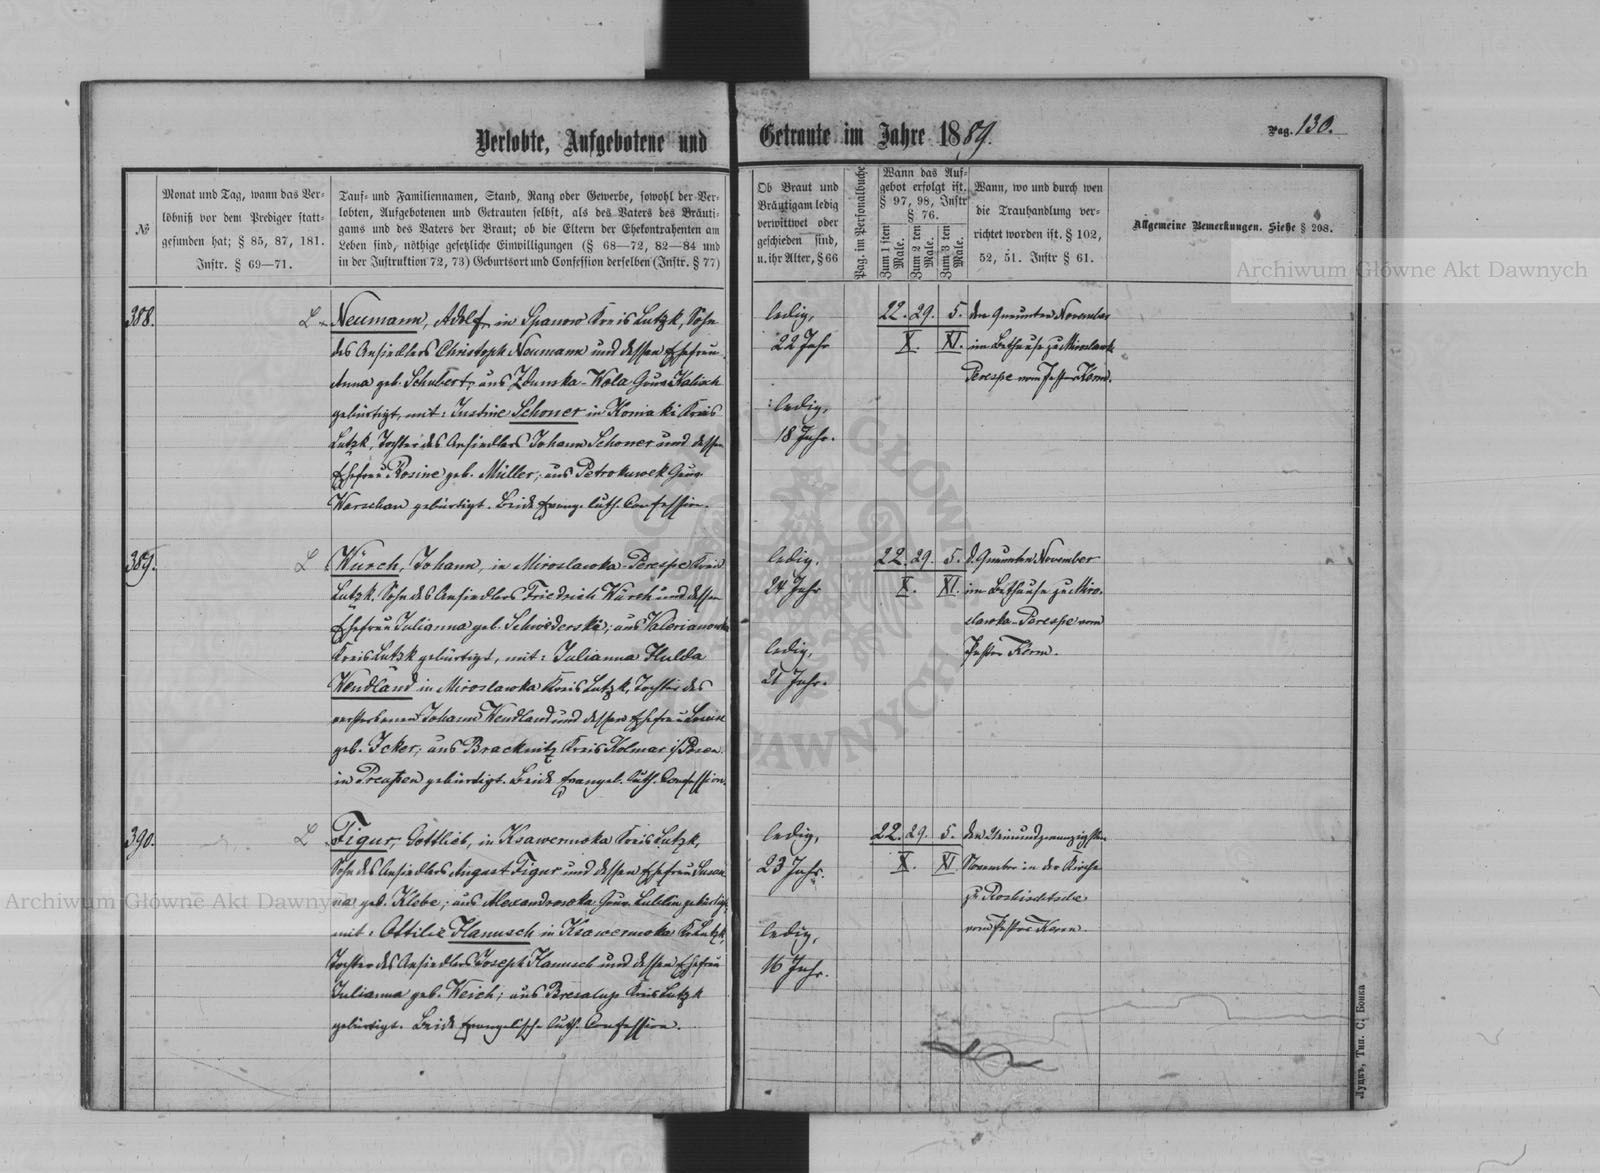 Verlobte, Aufgebotene und Getraute im Jahre 1889.
Pag. 130.
№
Monat und Tag, wann das Ver-
löbniß vor dem Prediger statt-
gefunden hat; § 85, 87, 181.
Instr. § 69—71.
Tauf- und Familiennamen, Stand, Rang oder Gewerbe, sowohl der Ver-
lobten, Aufgebotenen und Getrauten selbst, als des Vaters des Bräuti-
gams und des Vaters der Braut; ob die Eltern der Ehekontrahenten am
Leben sind, nöthige gesetzliche Einwilligungen (§ 68—72, 82—84 und
in der Instruktion 72, 73) Geburtsort und Confession derselben (Instr. § 77)
Ob Braut und
Bräutigam ledig
verwittwet oder
geschieden sind,
u. ihr Alter, § 66
Pag. im Personalbuche
Wann das Auf-
gebot erfolgt ist.
§ 97, 98, Instr
§ 76.
Zum 1 sten Male.
Zum 2 ten Male.
Zum 3 ten Male.
Wann, wo und durch wen
die Trauhandlung ver-
richtet worden ist. § 102,
52, 51. Instr § 61.
Allgemeine Bemerkungen. Siehe § 208.
Archiwum Główne Akt Dawnych
388.
L
Neumann, Adolf, in Spanow Kreis Lutzk, Sohn
des Ansiedlers Christoph Neumann und dessen Ehefrau
Anna geb. Schubert; aus Zdunska-Wola Gouv. Kalisch
gebürtigt, mit: Justine Schoner in Koniaki Kreis
Lutzk, Tochter des Ansiedlers Johann Schoner und dessen
Ehefrau Rosine geb. Müller; aus Petrokuwek Gouv.
Warschau gebürtigt. Beide Evang. Luth. Confession.
ledig,
22 Jahr
ledig,
18 Jahr.
22. 29. 5.
X. XI.
den Neunten November
im Bethause zu Miroslawk
Perespe vom Pastor Kerm.
389.
L
Würch, Johann, in Miroslawka-Perespe Kreis
Lutzk, Sohn des Ansiedlers Friedrich Würch und dessen
Ehefrau Julianna geb. Schwederski; aus Valerianowka
Kreis Lutzk gebürtigt, mit: Julianna Hulda
Wendland in Miroslawka Kreis Lutzk, Tochter des
verstorbenen Johann Wendland und dessen Ehefrau Louise
geb. Icker; aus Bracknitz Kreis Kolmar i/Posen
in Preußen gebürtigt. Beide Evangel. Luth. Confession.
ledig,
24 Jahr
ledig,
21 Jahr.
22. 29. 5.
X. XI.
d. Neunten November
im Bethause zu Miro-
slawka-Perespe vom
Pastor Kerm.
390.
L
Figur, Gottlieb, in Ksawerowka Kreis Lutzk,
Sohn des Ansiedlers August Figur und dessen Ehefrau Susan
na geb. Klebe; aus Alexandrowka Gouv. Lublin gebürtigt,
mit: Ottilie Hanusch in Ksawerowka Kr. Lutzk,
Tochter des Ansiedlers Joseph Hanusch und dessen Ehefrau
Julianna geb. Weich; aus Bresalup Kreis Lutzk
gebürtigt. Beide Evangelisch Luth. Confession.
ledig,
23 Jahr.
ledig,
16 Jahr.
22. 29. 5.
X. XI.
den Neunundzwanzigsten
November in der Kirche
zu Roshischtsche
vom Pastor Kerm.
Archiwum Główne Akt Dawnych
Луцкъ, Тип. С. Бонка